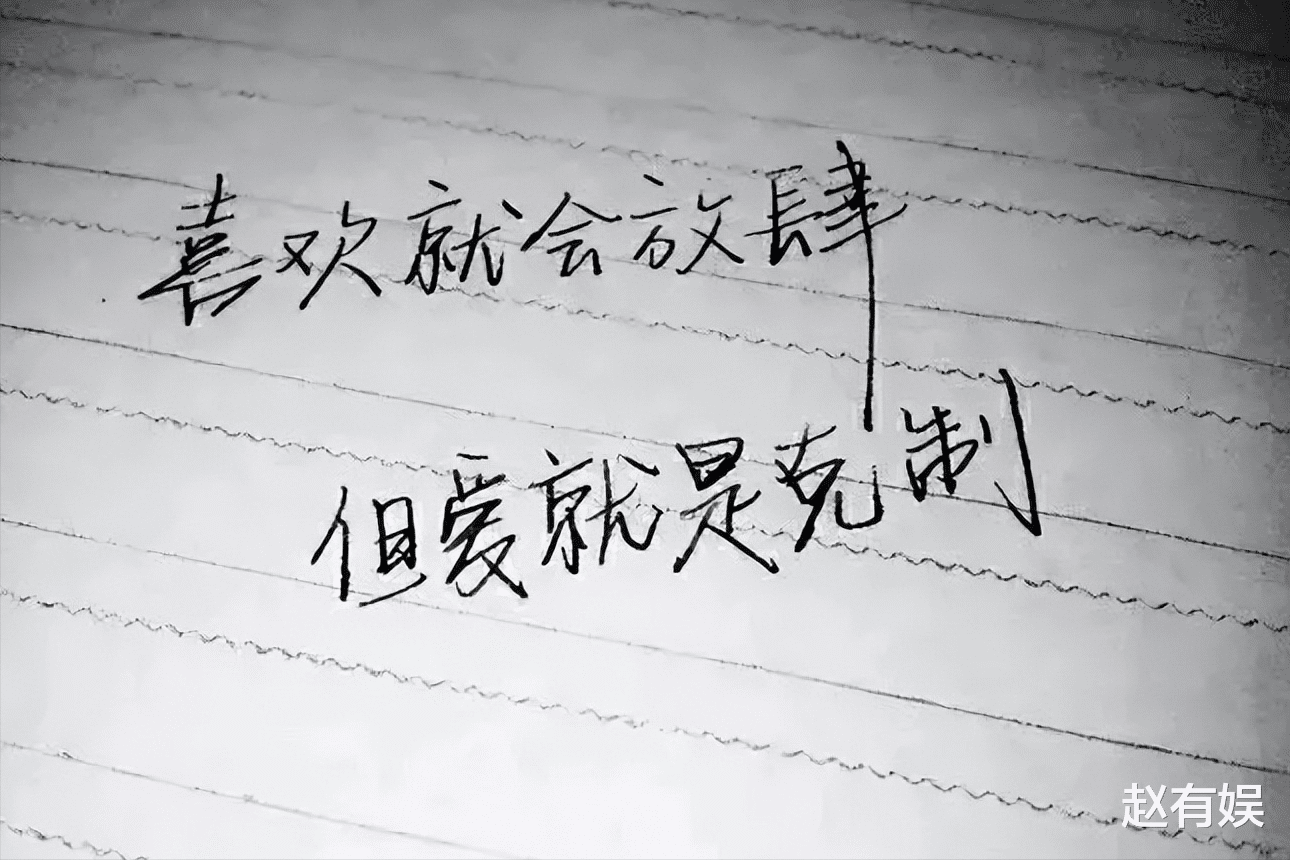 喜欢就会放肆
但爱就是克制
赵有娱